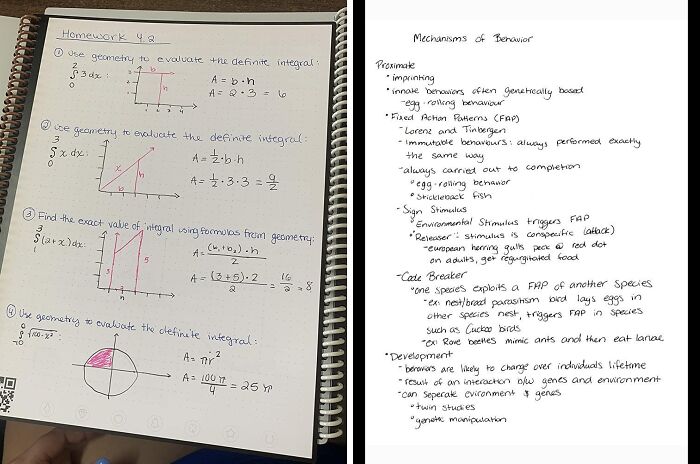 Homework 4.2
① Use geometry to evaluate the definite integral:
2
∫ 3 dx:
0
b
h
3
2
1
1 2 3 4
A = b·h
A = 2·3 = 6
② Use geometry to evaluate the definite integral:
3
∫ x dx:
0
x
h
b
A = 1/2·b·h
A = 1/2·3·3 = 9/2
③ Find the exact value of integral using formulas from geometry:
3
∫ (2+x) dx:
1
3
5
h
A = (b₁+b₂)·h / 2
A = (3+5)·2 / 2 = 16/2 = 8
④ Use geometry to evaluate the definite integral:
0
∫ √100-x² :
-10
A = πr²
A = 100π/4 = 25π
Mechanisms of Behavior
Proximate
• imprinting
• innate behaviors often genetically based
- egg-rolling behaviour
• Fixed Action Patterns (FAP)
- Lorenz and Tinbergen
- Immutable behaviours: always performed exactly
the same way
- always carried out to completion
° egg-rolling behavior
° Stickleback fish
- Sign Stimulus
° Environmental Stimulus triggers FAP
° Releaser: stimulus is conspecific (attack)
- european herring gulls peck @ red dot
on adults, get regurgitated food
- Code Breaker
° one species exploits a FAP of another species
- ex: nest/brood parasitism bird lays eggs in
other species nest, triggers FAP in species
such as Cuckoo birds
- ex: Rove beetles mimic ants and then eat larvae
• Development
- behaviors are likely to change over individuals lifetime
- result of an interaction b/w genes and environment
- can seperate evironment & genes
° twin studies
° genetic manipulation